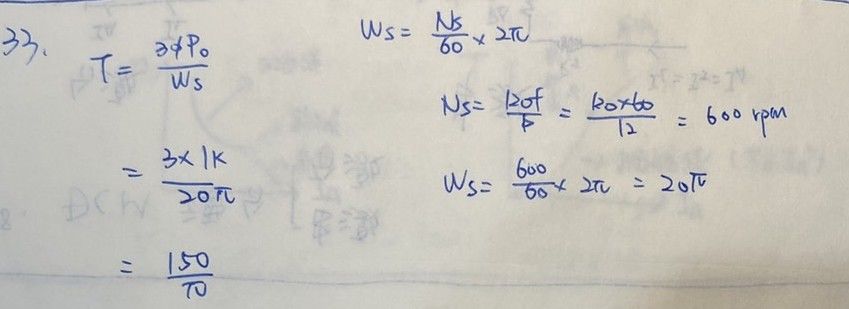 33.
T = 3ϕP₀ / Ws
= 3 × 1K / 20π
= 150 / π
Ws = Ns / 60 × 2π
Ns = 120f / P = 120×60 / 12 = 600 rpm
Ws = 600 / 60 × 2π = 20π